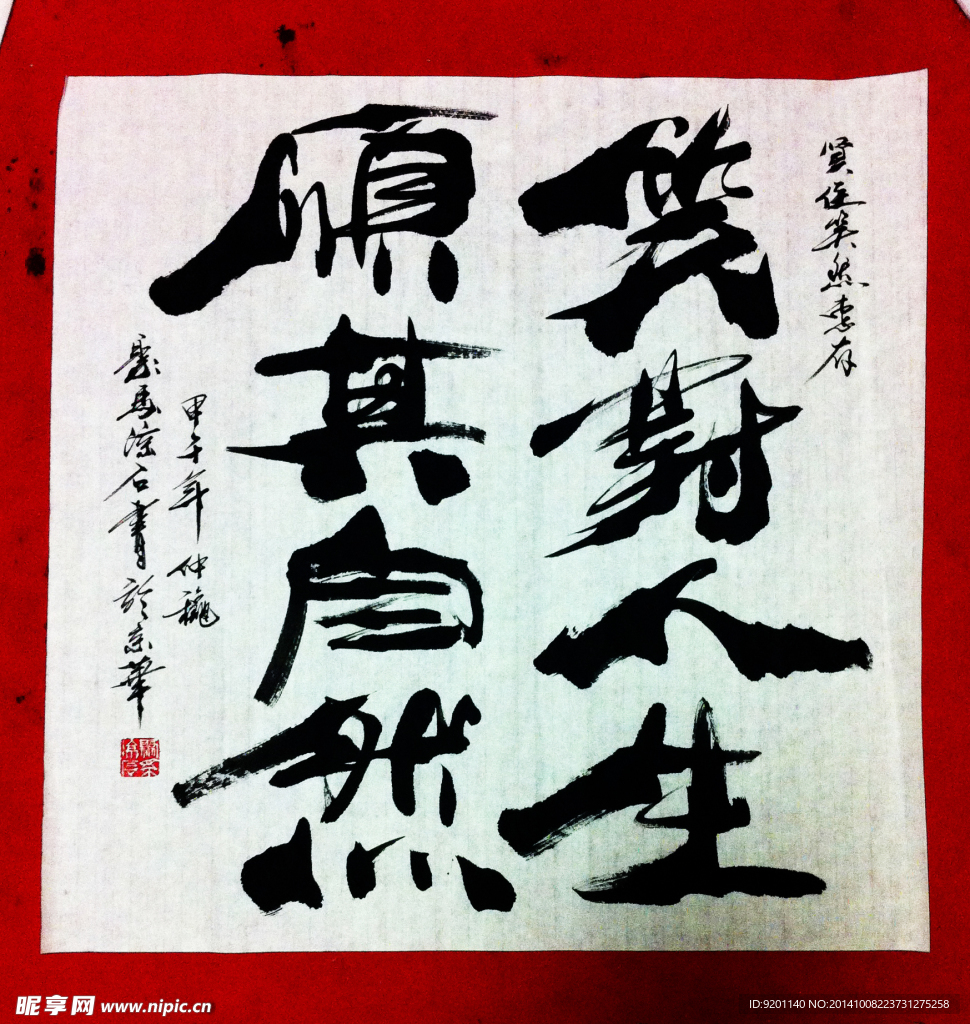 贤侄英然惠存
笑對人生
順其自然
甲午年仲龝
石書於京華
昵享网 www.nipic.cn
ID:9201140 NO:20141008223731275258